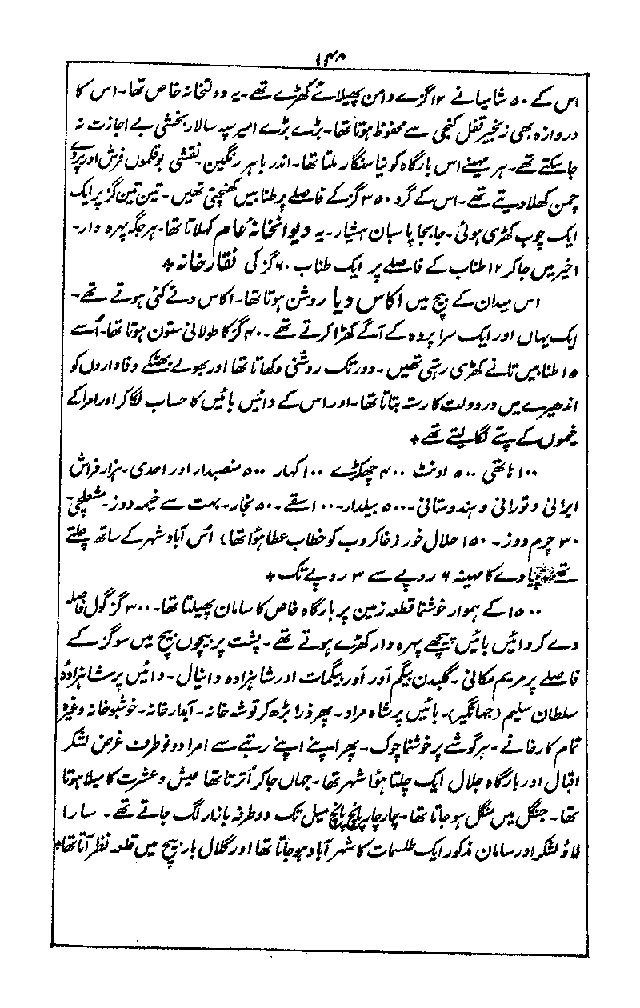 ۱۴۸
اس کے ۵۰ شامیانے ۱۲ گزے دامن پھیلائے کھڑے تھے۔ یہ دولتخانہ خاص تھا۔ اس کا
دروازہ بھی زنجیر قفل کنجی سے محفوظ ہوتا تھا۔ بڑے بڑے امیر سپہ سالار بخشی بے اجازت نہ
جا سکتے تھے۔ ہر مہینے اس بارگاہ کو نیا سنگار ملتا تھا۔ اندر باہر رنگین۔ نقشی بوقلموں فرش اور پردے
چمن کھلا دیتے تھے۔ اس کے گرد ۳۵۰ گز کے فاصلے پر طنابیں کھنچی تھیں۔ تین تین گز پر ایک
ایک چوب کھڑی ہوئی۔ جابجا پاسبان ہشیار۔ یہ دیوانخانۂ عام کہلاتا تھا۔ ہر جگہ پہرہ دار۔
اخیر میں جا کر ۱۲ طناب کے فاصلے پر ایک طناب ۶۰ گز کی نقار خانہ +
اس میدان کے بیچ میں اکاس دیا روشن ہوتا تھا۔ اکاس دئے کئی ہوتے تھے۔
ایک یہاں اور ایک سراپردہ کے آگے کھڑا کرتے تھے۔ ۴۰ گز کا طولانی ستون ہوتا تھا۔ اُسے
۱۵ طنابیں تانے کھڑی رہتی تھیں۔ دور تک روشنی دکھاتا تھا اور بھولے بھٹکے وفاداروں کو
اندھیرے میں در دولت کا رستہ بتاتا تھا۔ اور اس کے دائیں بائیں کا حساب لگا کر اور امرا کے
خیموں کے پتے لگا لیتے تھے +
۱۰۰ ہاتھی ۵۰۰ اونٹ ۴۰۰ چھکڑے ۱۰۰ کہار ۵۰۰ منصبدار اور احدی۔ ہزار فراش
ایرانی و تورانی و ہندوستانی۔ ۵۰۰ بیلدار۔ ۱۰۰ سقے۔ ۵۰ نجار۔ بہت سے خیمہ دوز۔ مشعلچی
۳۰ چرم دوز۔ ۱۵۰ حلال خور (خاکروب کو خطاب عطا ہوا تھا) اُس آباد شہر کے ساتھ چلتے
تھے پیادے کا مہینہ ۶ روپے سے ۳ روپے تک +
۱۵۰۰ کے ہموار خوشنما قطعہ زمین پر بارگاہ خاص کا سامان پھیلتا تھا۔ ۳۰۰ گز گول فاصلہ
دے کر دائیں بائیں پیچھے پہرہ دار کھڑے ہوتے تھے۔ پشت پر بیچوں بیچ میں سو گز کے
فاصلے پر مریم مکانی۔ گلبدن بیگم اور اَور بیگمات اور شاہزادہ دانیال۔ دائیں پر شاہزادہ
سلطان سلیم (جہانگیر)۔ بائیں پر شاہ مراد۔ پھر ذرا بڑھ کر توشہ خانہ۔ آبدار خانہ۔ خوشبو خانہ وغیرہ
تمام کارخانے۔ ہر گوشے پر خوشنما چوک۔ پھر اپنے اپنے رتبے سے امرا دو طرف۔ غرض لشکر
اقبال اور بارگاہ جلال ایک چلتا ہوا شہر تھا۔ جہاں جا کر اُترتا تھا عیش و عشرت کا میلا ہوتا
تھا۔ جنگل میں منگل ہو جاتا تھا۔ چار چار پانچ پانچ میل تک دو طرفہ بازار لگ جاتے تھے۔ سارا
لاؤ لشکر اور سامان مذکور ایک طلسمات کا شہر آباد ہو جاتا تھا اور گلال بار بیچ میں قلعہ نظر آتا تھا +